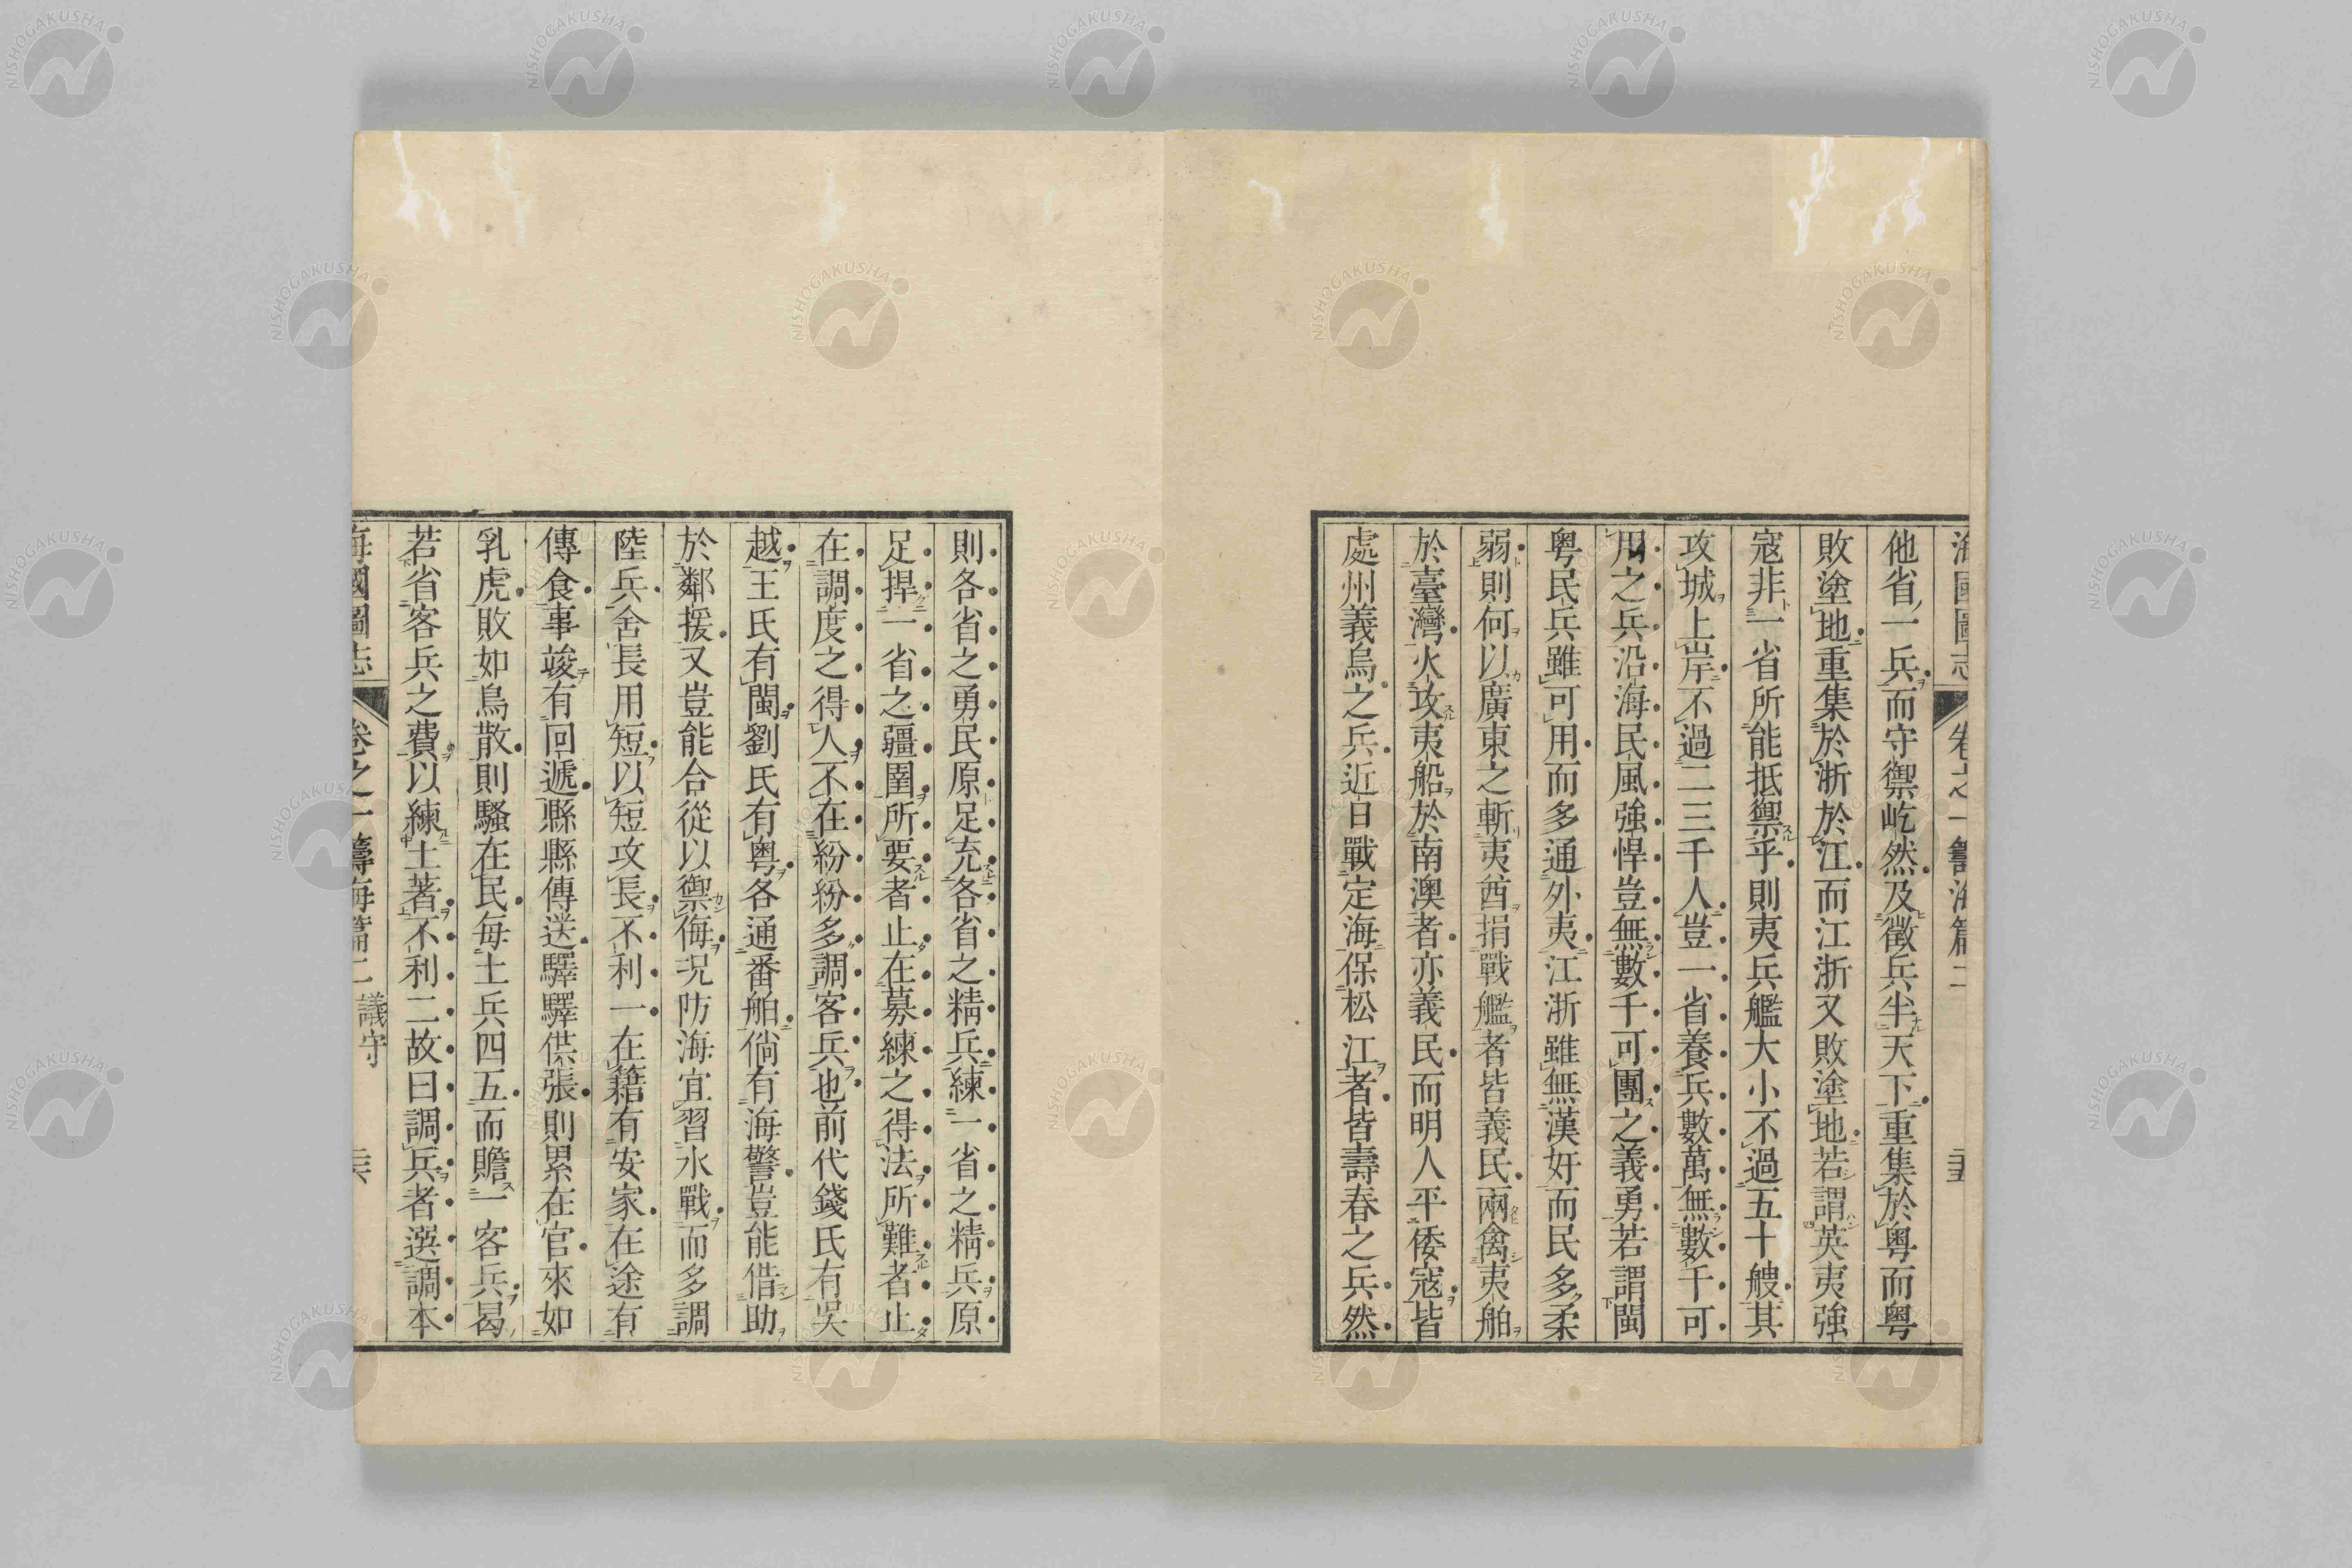 海國圖志 卷之一 籌海篇二
他省一兵而守禦屹然及徵兵半天下重集於粵而粵
敗塗地重集於浙於江而江浙又敗塗地若謂英夷強
寇非一省所能抵禦乎則夷兵艦大小不過五十艘其
攻城上岸不過二三千人豈一省養兵數萬無數千可
用之兵沿海民風強悍豈無數千可團之義勇若謂閩
粵民兵雖可用而多通外夷江浙雖無漢奸而民多柔
弱則何以廣東之斬夷酋捐戰艦者皆義民兩禽夷舶
於臺灣火攻夷船於南澳者亦義民而明人平倭寇皆
處州義烏之兵近日戰定海保松江者皆壽春之兵然
則各省之勇民原足充各省之精兵練一省之精兵原
足捍一省之疆圉所要者止在募練之得法所難者止
在調度之得人不在紛紛多調客兵也前代錢氏有吳
越王氏有閩劉氏有粵各通番舶倘有海警豈能借助
於鄰援又豈能合從以禦侮況防海宜習水戰而多調
陸兵舍長用短以短攻長不利一在籍有安家在途有
傳食事竣有回遞縣縣傳送驛驛供張則累在官來如
乳虎敗如鳥散則騷在民每土兵四五而贍一客兵曷
若省客兵之費以練土著不利二故曰調兵者選調本
海國圖志 卷之一 籌海篇二 議守
NISHOGAKUSHA